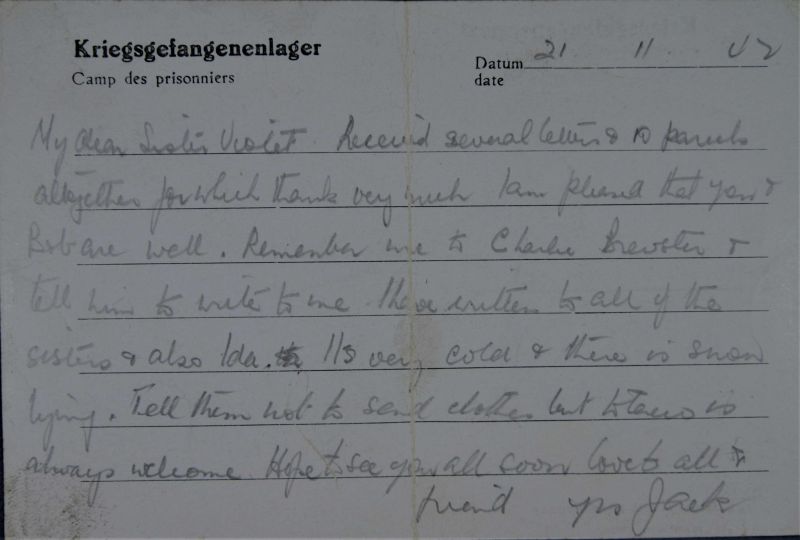 Kriegsgefangenenlager
Camp des prisonniers
Datum 21 11 42
date
My dear Sister Violet. Received several letters & 10 parcels
altogether for which thank very much I am pleased that you &
Bob are well. Remember me to Charlie Brewster &
tell him to write to me. I have written to all of the
sisters & also Ida. Its very cold & there is snow
lying. Tell them not to send clothes but is
always welcome. Hope to see you all soon love to all &
friend yrs Jack